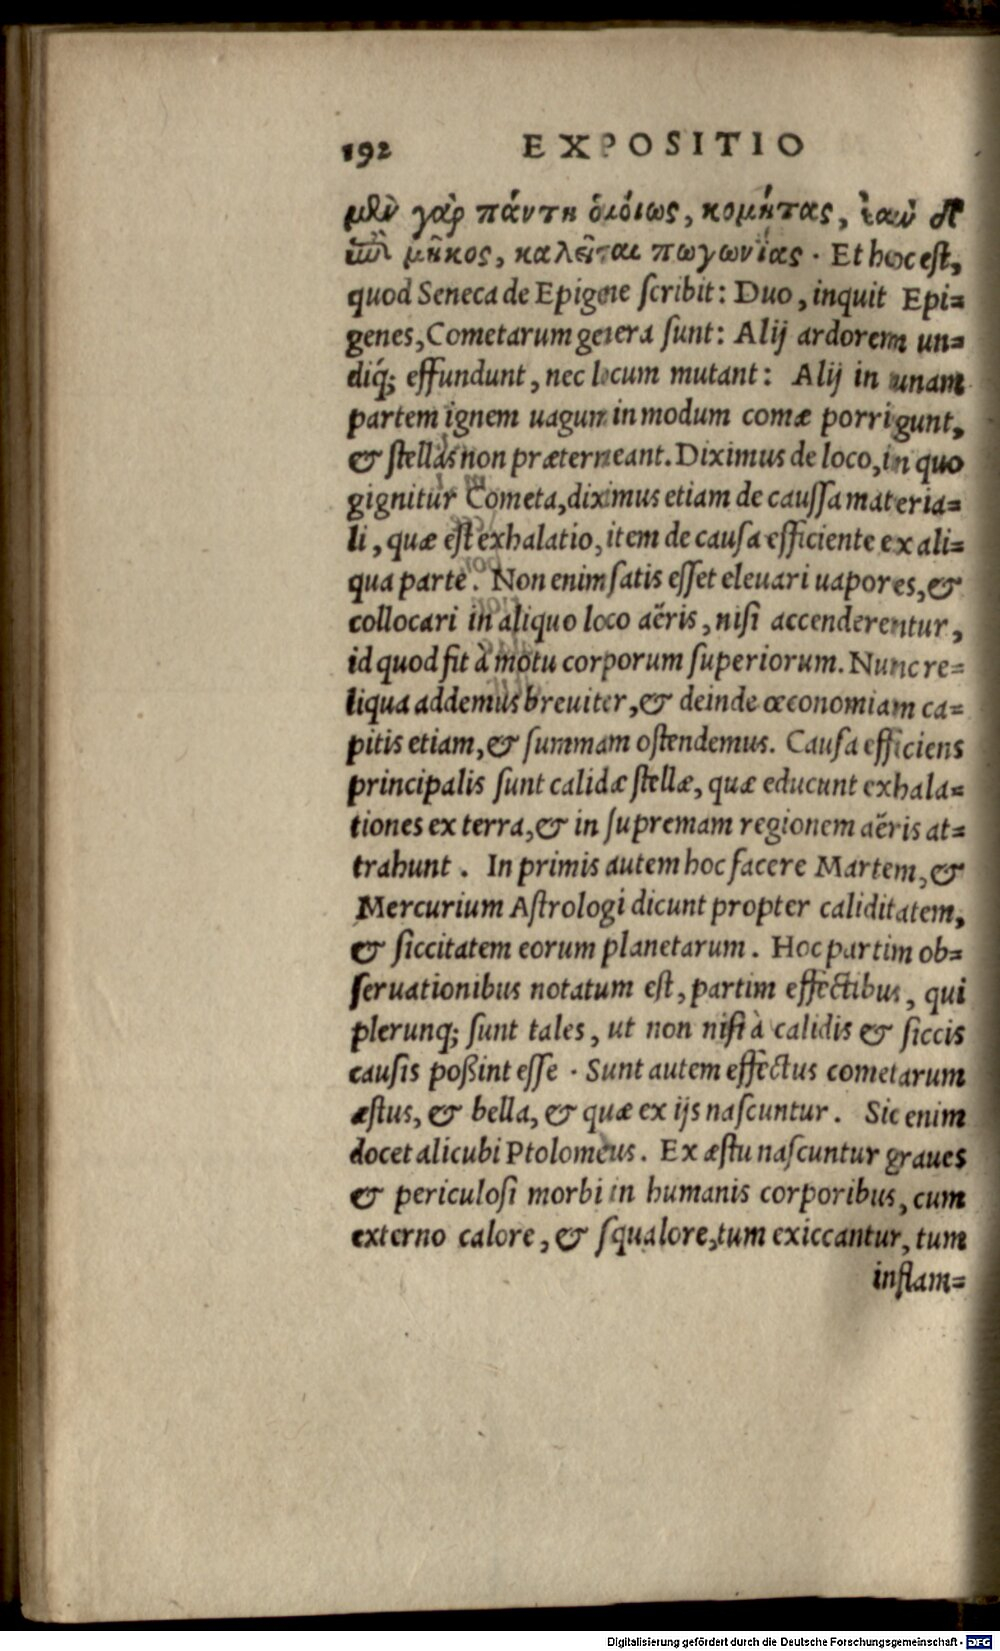 192 EXPOSITIO
μὲν γὰρ πάντη ὁμοίως, κομήτας, ἐὰν δὲ
ἐπὶ μῆκος, καλεῖται πωγωνίας. Et hoc est,
quod Seneca de Epigene scribit: Duo, inquit Epi=
genes, Cometarum genera sunt: Alij ardorem un=
diq́; effundunt, nec locum mutant: Alij in unam
partem ignem uagum in modum comæ porrigunt,
& stellas non præterneant. Diximus de loco, in quo
gignitur Cometa, diximus etiam de caussa materia=
li, quæ est exhalatio, item de causa efficiente ex ali=
qua parte. Non enim satis esset eleuari uapores, &
collocari in aliquo loco aëris, nisi accenderentur,
id quod fit à motu corporum superiorum. Nunc re=
liqua addemus breuiter, & deinde œconomiam ca=
pitis etiam, & summam ostendemus. Causa efficiens
principalis sunt calidæ stellæ, quæ educunt exhala=
tiones ex terra, & in supremam regionem aëris at=
trahunt. In primis autem hoc facere Martem, &
Mercurium Astrologi dicunt propter caliditatem,
& siccitatem eorum planetarum. Hoc partim ob=
seruationibus notatum est, partim effectibus, qui
plerunq; sunt tales, ut non nisi à calidis & siccis
causis poßint esse. Sunt autem effectus cometarum
æstus, & bella, & quæ ex ijs nascuntur. Sic enim
docet alicubi Ptolomeus. Ex æstu nascuntur graues
& periculosi morbi in humanis corporibus, cum
externo calore, & squalore, tum exiccantur, tum
inflam=
Digitalisierung gefördert durch die Deutsche Forschungsgemeinschaft - DFG